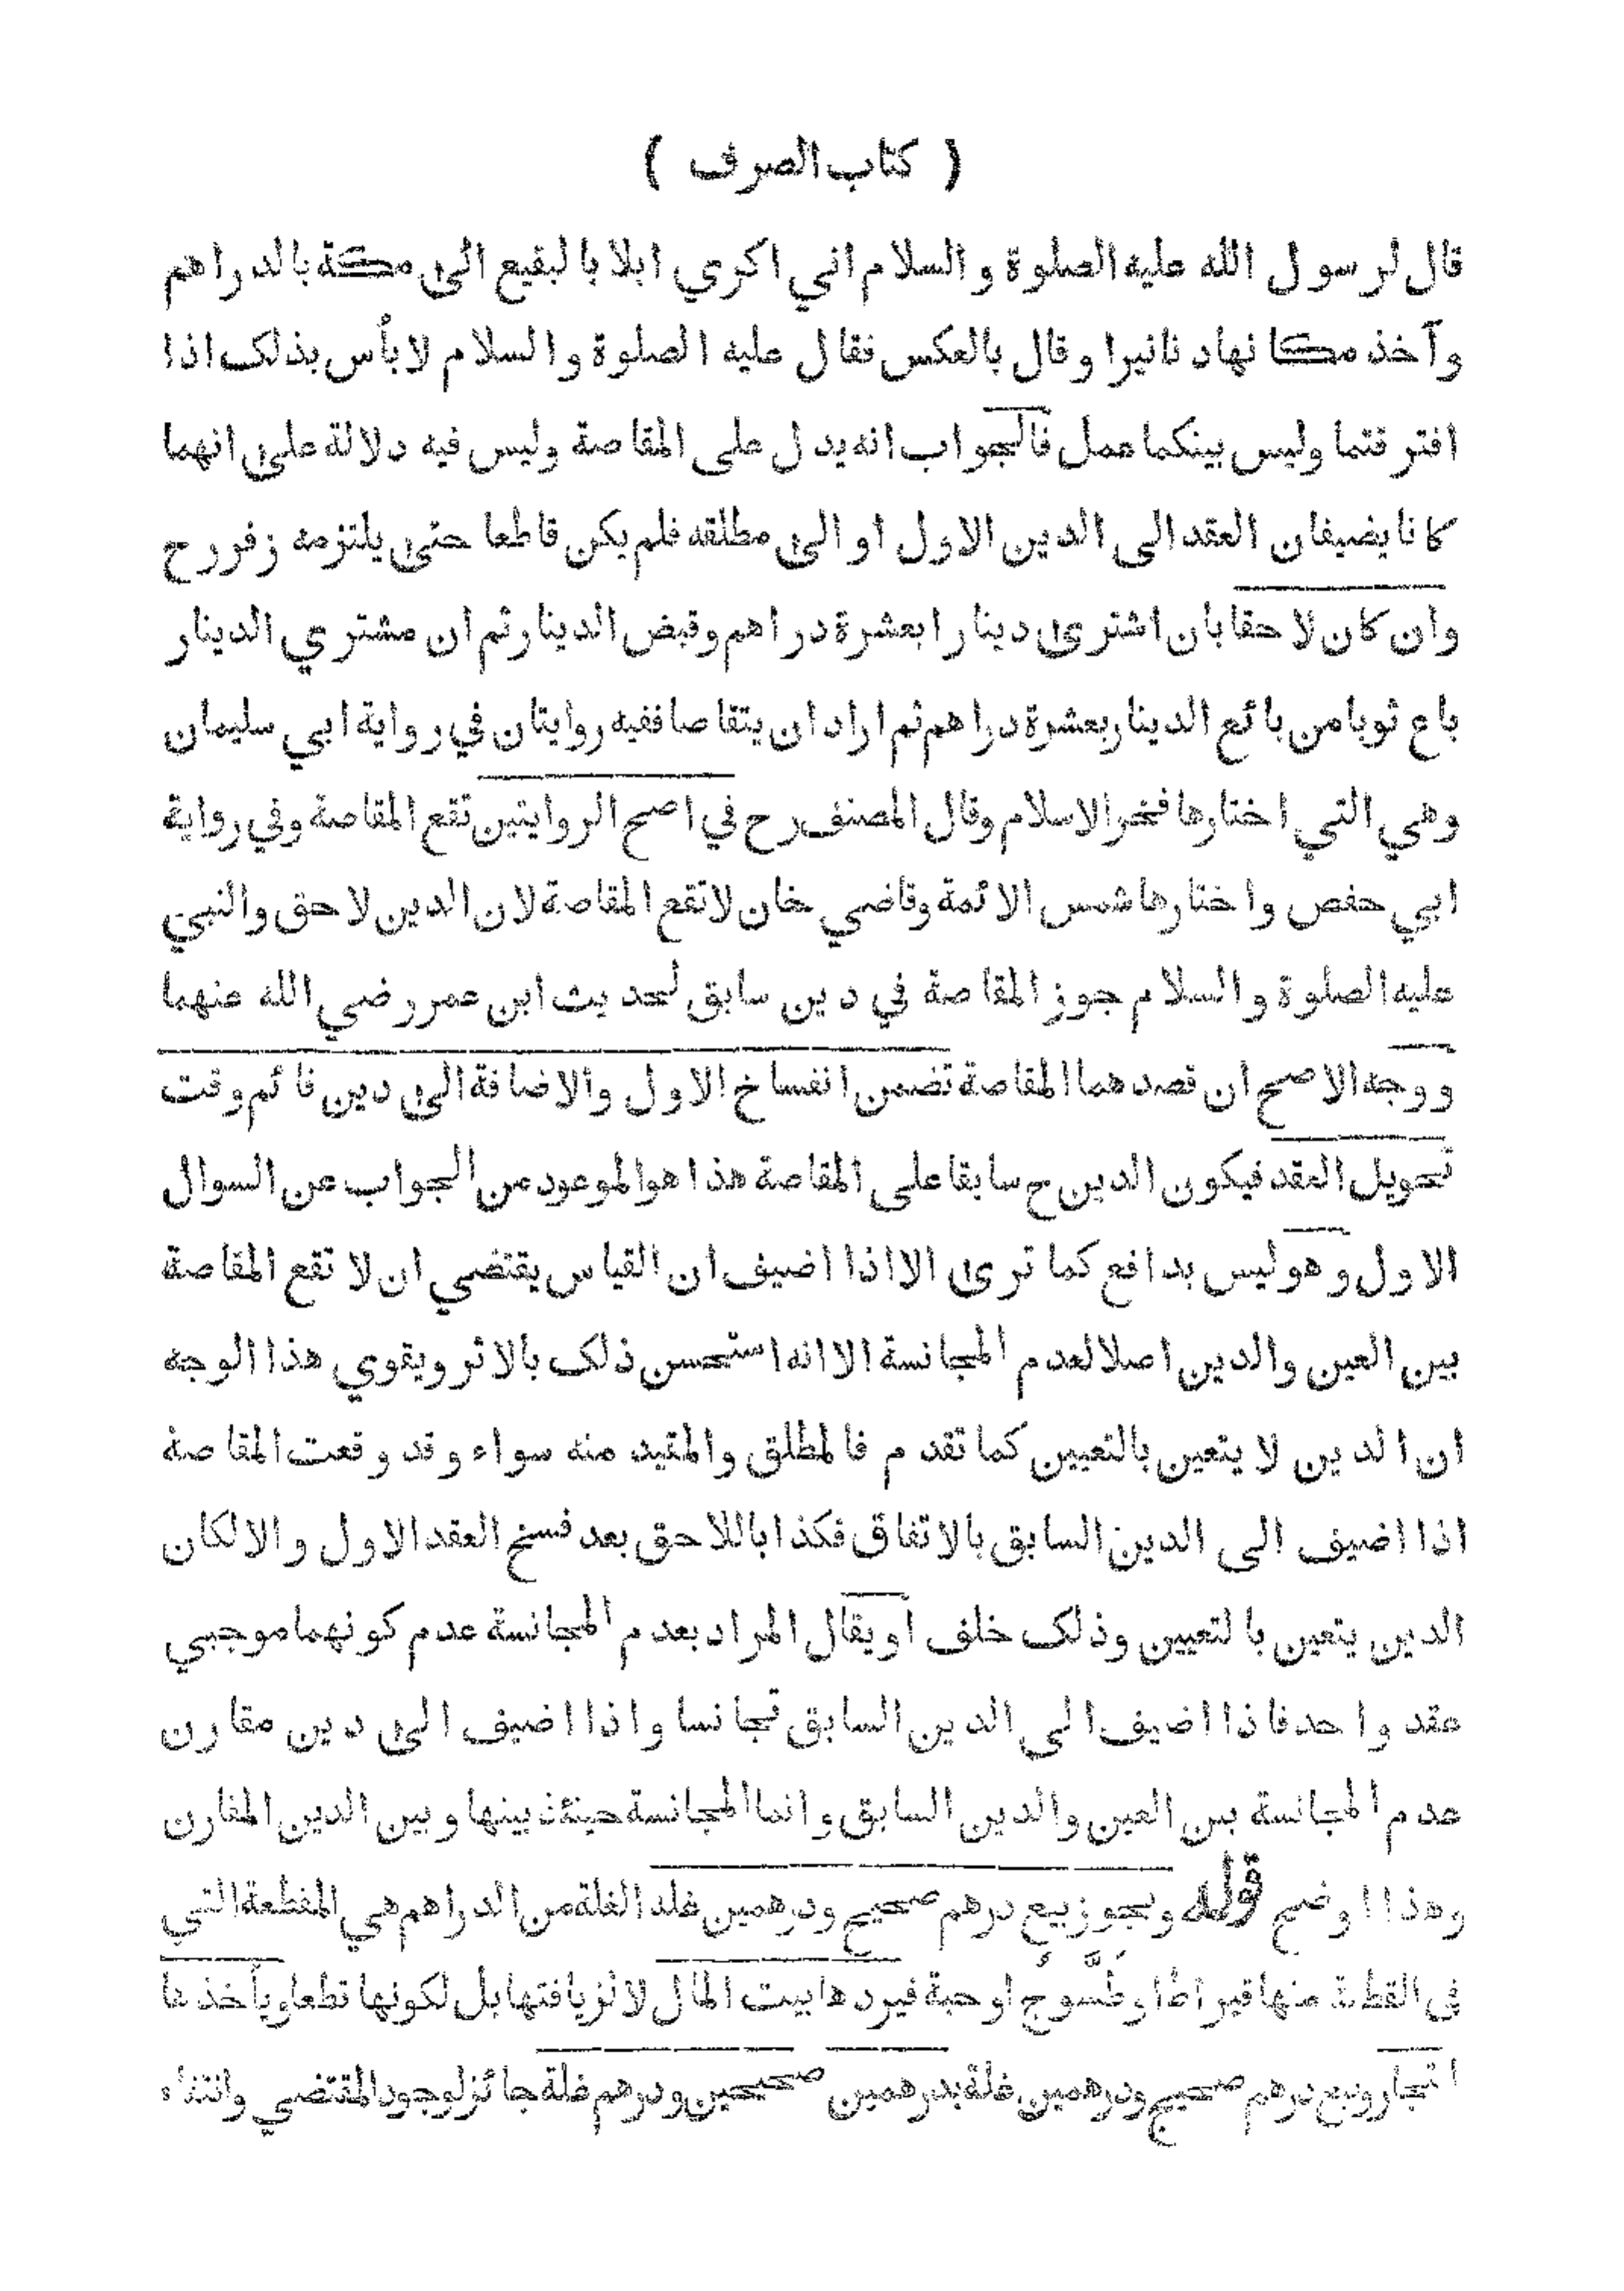 ( كتاب الصرف )
قال لرسول الله عليه الصلوة والسلام اني اكري ابلا بالبقيع الى مكة بالدراهم
وآخذ مكانها دنانيرا وقال بالعكس فقال عليه الصلوة والسلام لا بأس بذلك اذا
افترقتما وليس بينكما عمل فالجواب انه يدل على المقاصة وليس فيه دلالة على انهما
كانا يضيفان العقد الى الدين الاول او الى مطلقه فلم يكن قاطعا حتى يلتزمه زفر رح
وان كان لاحقا بان اشترى دينارا بعشرة دراهم وقبض الدينار ثم ان مشتري الدينار
باع ثوبا من بائع الدينار بعشرة دراهم ثم ارادا ان يتقاصا ففيه روايتان في رواية ابي سليمان
وهي التي اختارها فخر الاسلام وقال المصنف رح في اصح الروايتين تقع المقاصة وفي رواية
ابي حفص واختارها شمس الائمة وقاضي خان لا تقع المقاصة لان الدين لاحق والنبي
عليه الصلوة والسلام جوز المقاصة في دين سابق لحديث ابن عمر رضي الله عنهما
ووجه الاصح ان قصدهما المقاصة تضمن انفساخ الاول والاضافة الى دين قائم وقت
تحويل العقد فيكون الدين ح سابقا على المقاصة هذا هو الموعود من الجواب عن السوال
الاول وهو ليس بدافع كما ترى الا اذا اضيف ان القياس يقتضي ان لا تقع المقاصة
بين العين والدين اصلا لعدم المجانسة الا انه استحسن ذلك بالاثر ويقوي هذا الوجه
ان الدين لا يتعين بالتعيين كما تقدم فالمطلق والمقيد منه سواء وقد وقعت المقاصة
اذا اضيف الى الدين السابق بالاتفاق فكذا باللاحق بعد فسخ العقد الاول والا لكان
الدين يتعين بالتعيين وذلك خلف او يقال المراد بعدم المجانسة عدم كونهما موجبي
عقد واحد فاذا اضيف الى الدين السابق تجانسا واذا اضيف الى دين مقارن
عدم المجانسة بين العين والدين السابق وانما المجانسة حينئذ بينها وبين الدين المقارن
وهذا اوضح قوله ويجوز بيع درهم صحيح ودرهمين غلة الغلة من الدراهم هي المقطعة التي
في القطعة منها قيراط او طَسُّوج او حبة فيردها بيت المال لا لزيافتها بل لكونها قطعا ويأخذها
التجار وبيع درهم صحيح ودرهمين غلة بدرهمين صحيحين ودرهم غلة جائز لوجود المقتضي وانتفاء